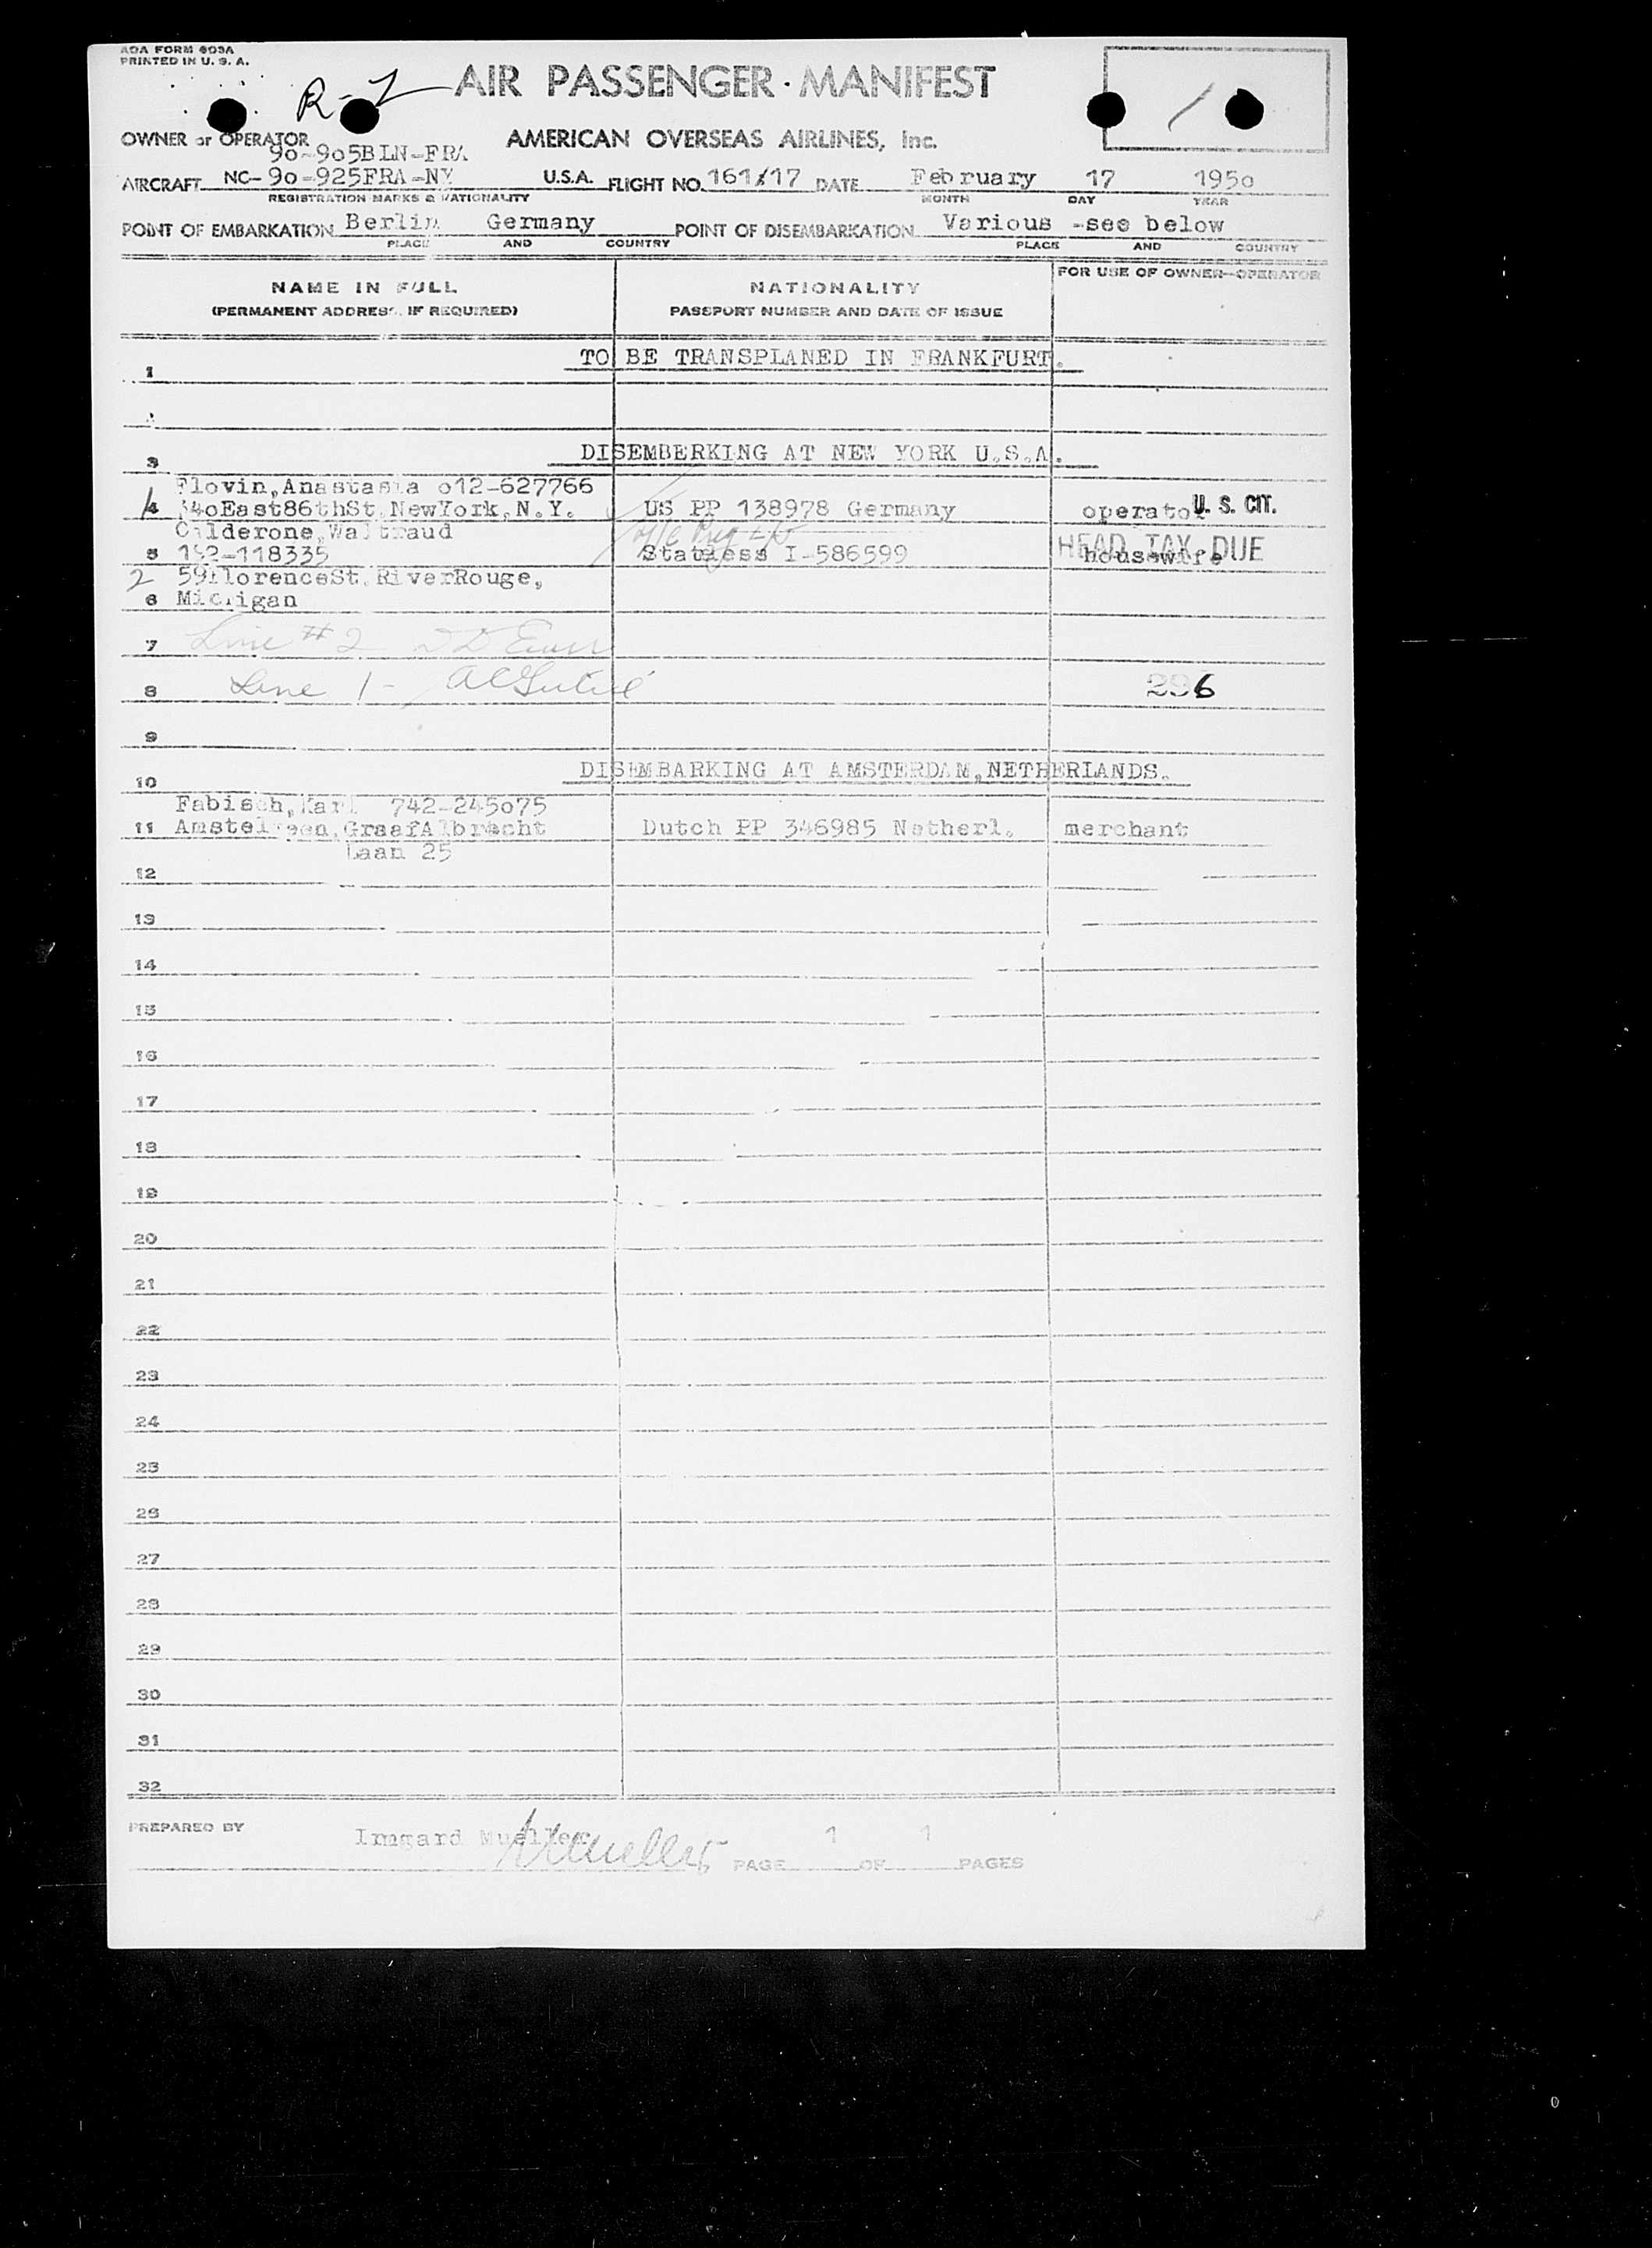 AOA FORM 603A
PRINTED IN U. S. A.
R-
AIR PASSENGER · MANIFEST
OWNER or OPERATOR AMERICAN OVERSEAS AIRLINES, Inc.
90-905BLN-FRA
AIRCRAFT NC- 90-925FRA-NY U.S.A. FLIGHT NO. 161/17 DATE February 17 1950
REGISTRATION MARKS & NATIONALITY MONTH DAY YEAR
POINT OF EMBARKATION Berlin Germany POINT OF DISEMBARKATION Various -see below
PLACE AND COUNTRY PLACE AND COUNTRY
NAME IN FULL NATIONALITY FOR USE OF OWNER-OPERATOR
(PERMANENT ADDRESS, IF REQUIRED) PASSPORT NUMBER AND DATE OF ISSUE
TO BE TRANSPLANED IN FRANKFURT.
1
DISEMBERKING AT NEW YORK U.S.A.
3
Flovin,Anastasia o12-627766
4 East86thSt,NewYork,N.Y. US PP 138978 Germany operator U. S. CIT.
Calderone,Waltraud
5 -118335 Stateless I-586599 housewife HEAD TAX DUE
2 59FlorenceSt,RiverRouge,
6 Michigan
7 Line #2
8 Line 1- 296
9
DISEMBARKING AT AMSTERDAM,NETHERLANDS.
10
Fabisch,Karl 742-245o75
11 Amstelveen,GraafAlbrecht Dutch PP 346985 Netherl. merchant
Laan 25
12
13
14
15
16
17
18
19
20
21
22
23
24
25
26
27
28
29
30
31
32
PREPARED BY Irmgard Mueller Mueller PAGE 1 OF 1 PAGES